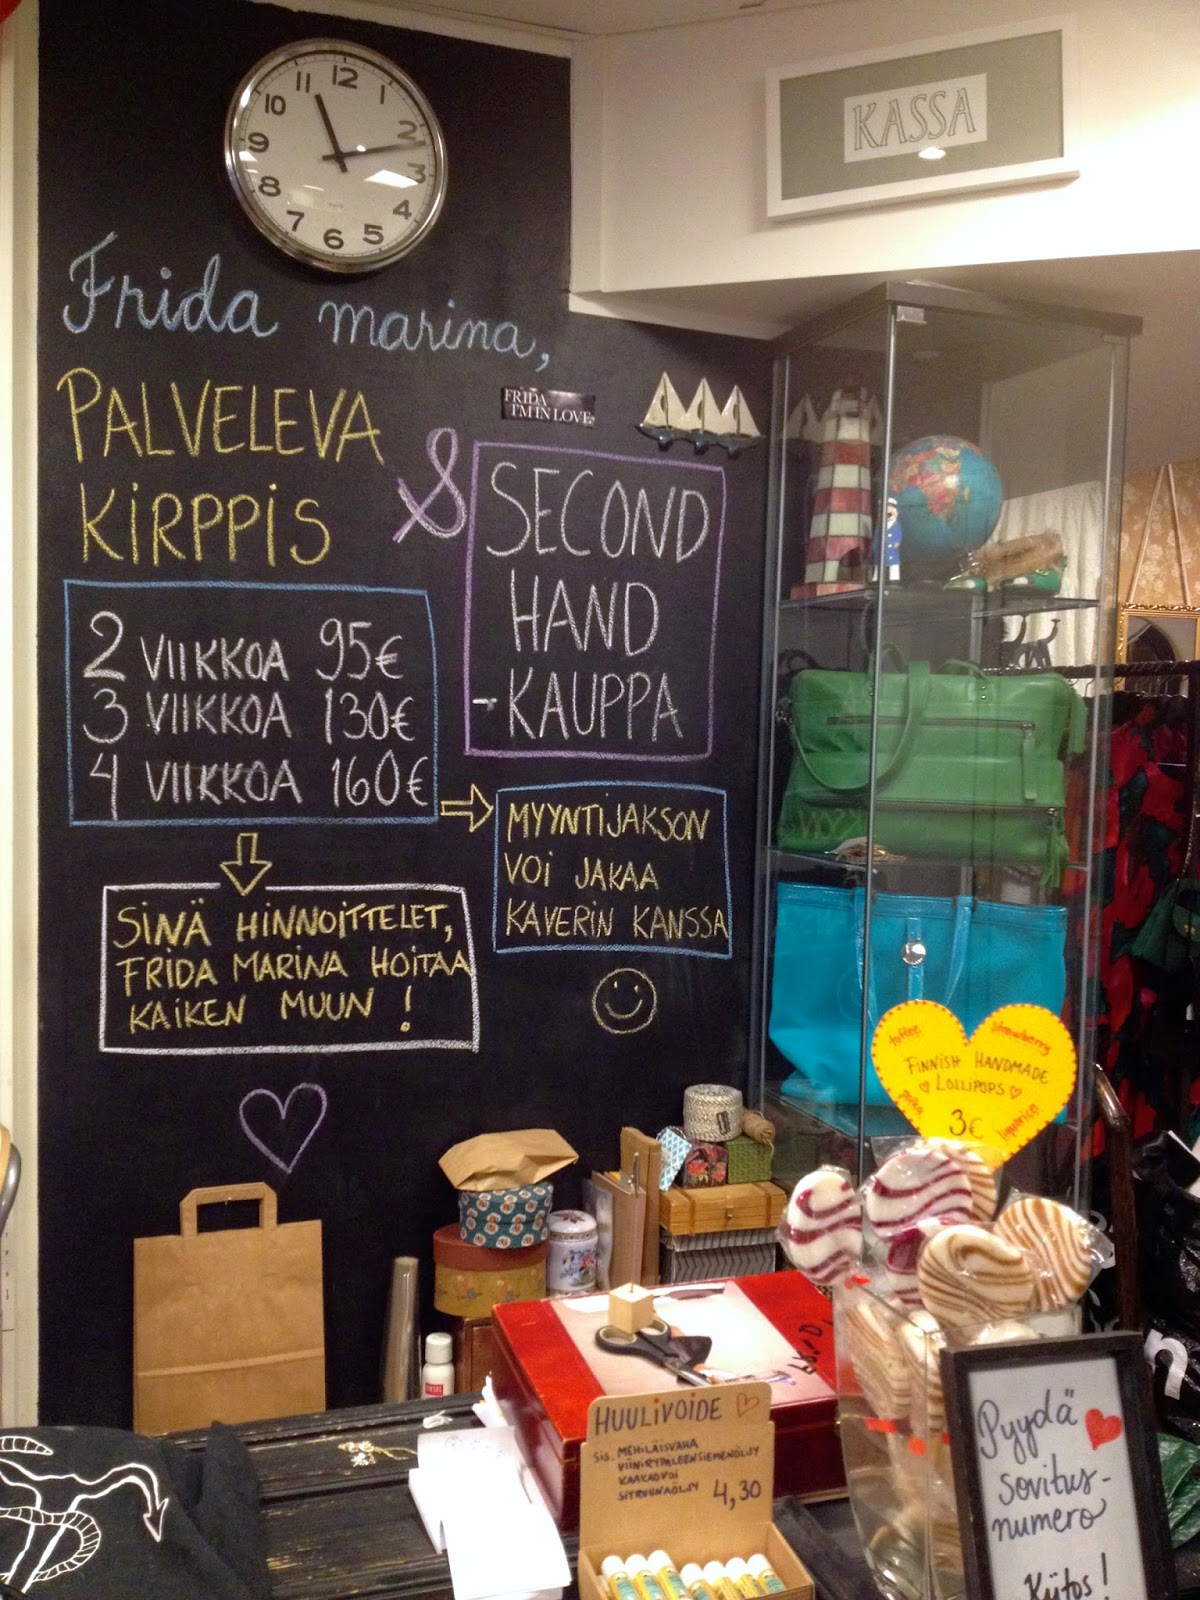 12
1
2
3
4
5
6
7
8
9
10
11
KASSA
Frida marina,
PALVELEVA
KIRPPIS
&
FRIDA
I'M IN LOVE
SECOND
HAND
-KAUPPA
2 VIIKKOA 95€
3 VIIKKOA 130€
4 VIIKKOA 160€
MYYNTIJAKSON
VOI JAKAA
KAVERIN KANSSA
SINÄ HINNOITTELET,
FRIDA MARINA HOITAA
KAIKEN MUUN!
toffee
strawberry
FINNISH HANDMADE
LOLLIPOPS
3€
polka
liquorice
HUULIVOIDE
SIS. MEHILÄISVAHA
VIINIRYPÄLEENSIEMENÖLJY
KAAKAOVOI
SITRUUNAÖLJY 4,30
Pyydä
sovitus-
numero
Kiitos!